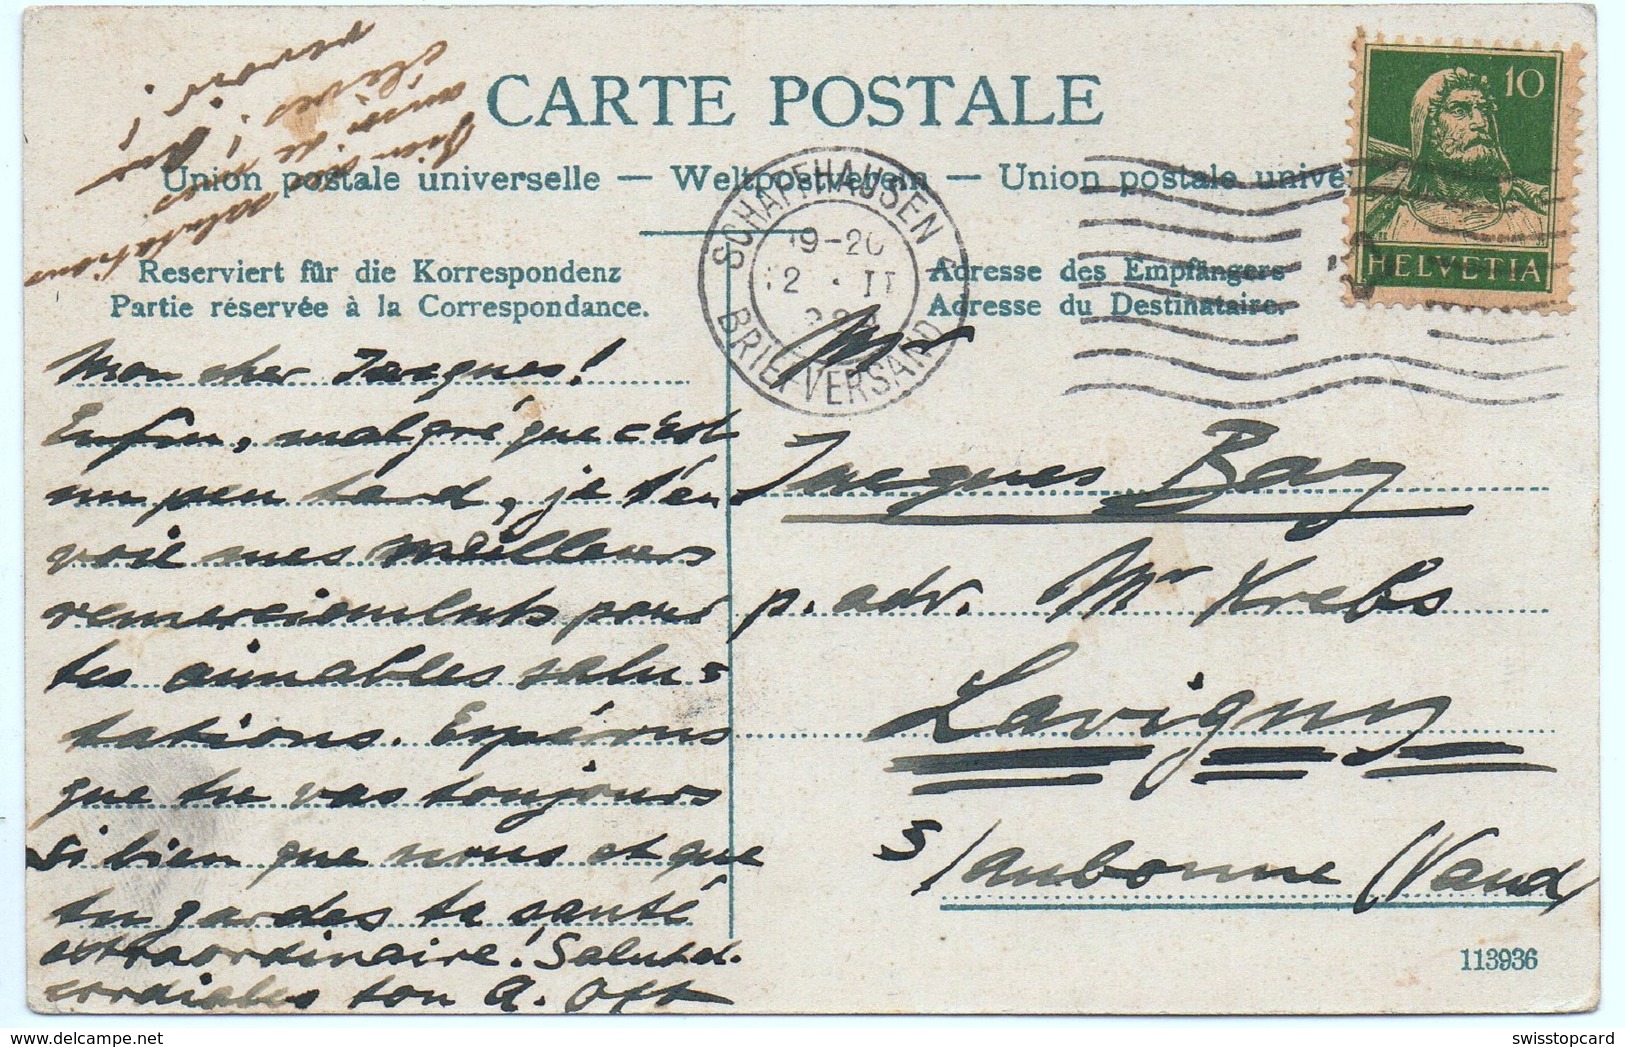 CARTE POSTALE
Union postale universelle — Weltpostverein — Union postale unive
Reserviert für die Korrespondenz
Partie réservée à la Correspondance.
Adresse des Empfängers
Adresse du Destinataire.
SCHAFFHAUSEN
19-20
II
BRIEFVERSAND
10
HELVETIA
Mon cher Jacques!
Enfin, malgré que c'est
un peu tard, je t'en
voie mes meilleurs
remerciements pour
tes aimables salu-
tations. Espérons
que tu vas toujours
si bien que nous et que
tu gardes ta santé
extraordinaire! Salut d.
cordiales ton A. Ott
Bien des salutations
aussi de nos
élèves!
Mr
Jacques Bay
p. adr. Mr Krebs
Lavigny
s/aubonne (Vaud)
113936
swisstopcard www.delcampe.net